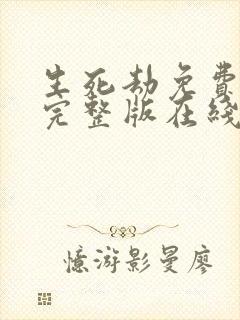 生死劫免費
完整版在綫
憶游影曼廖